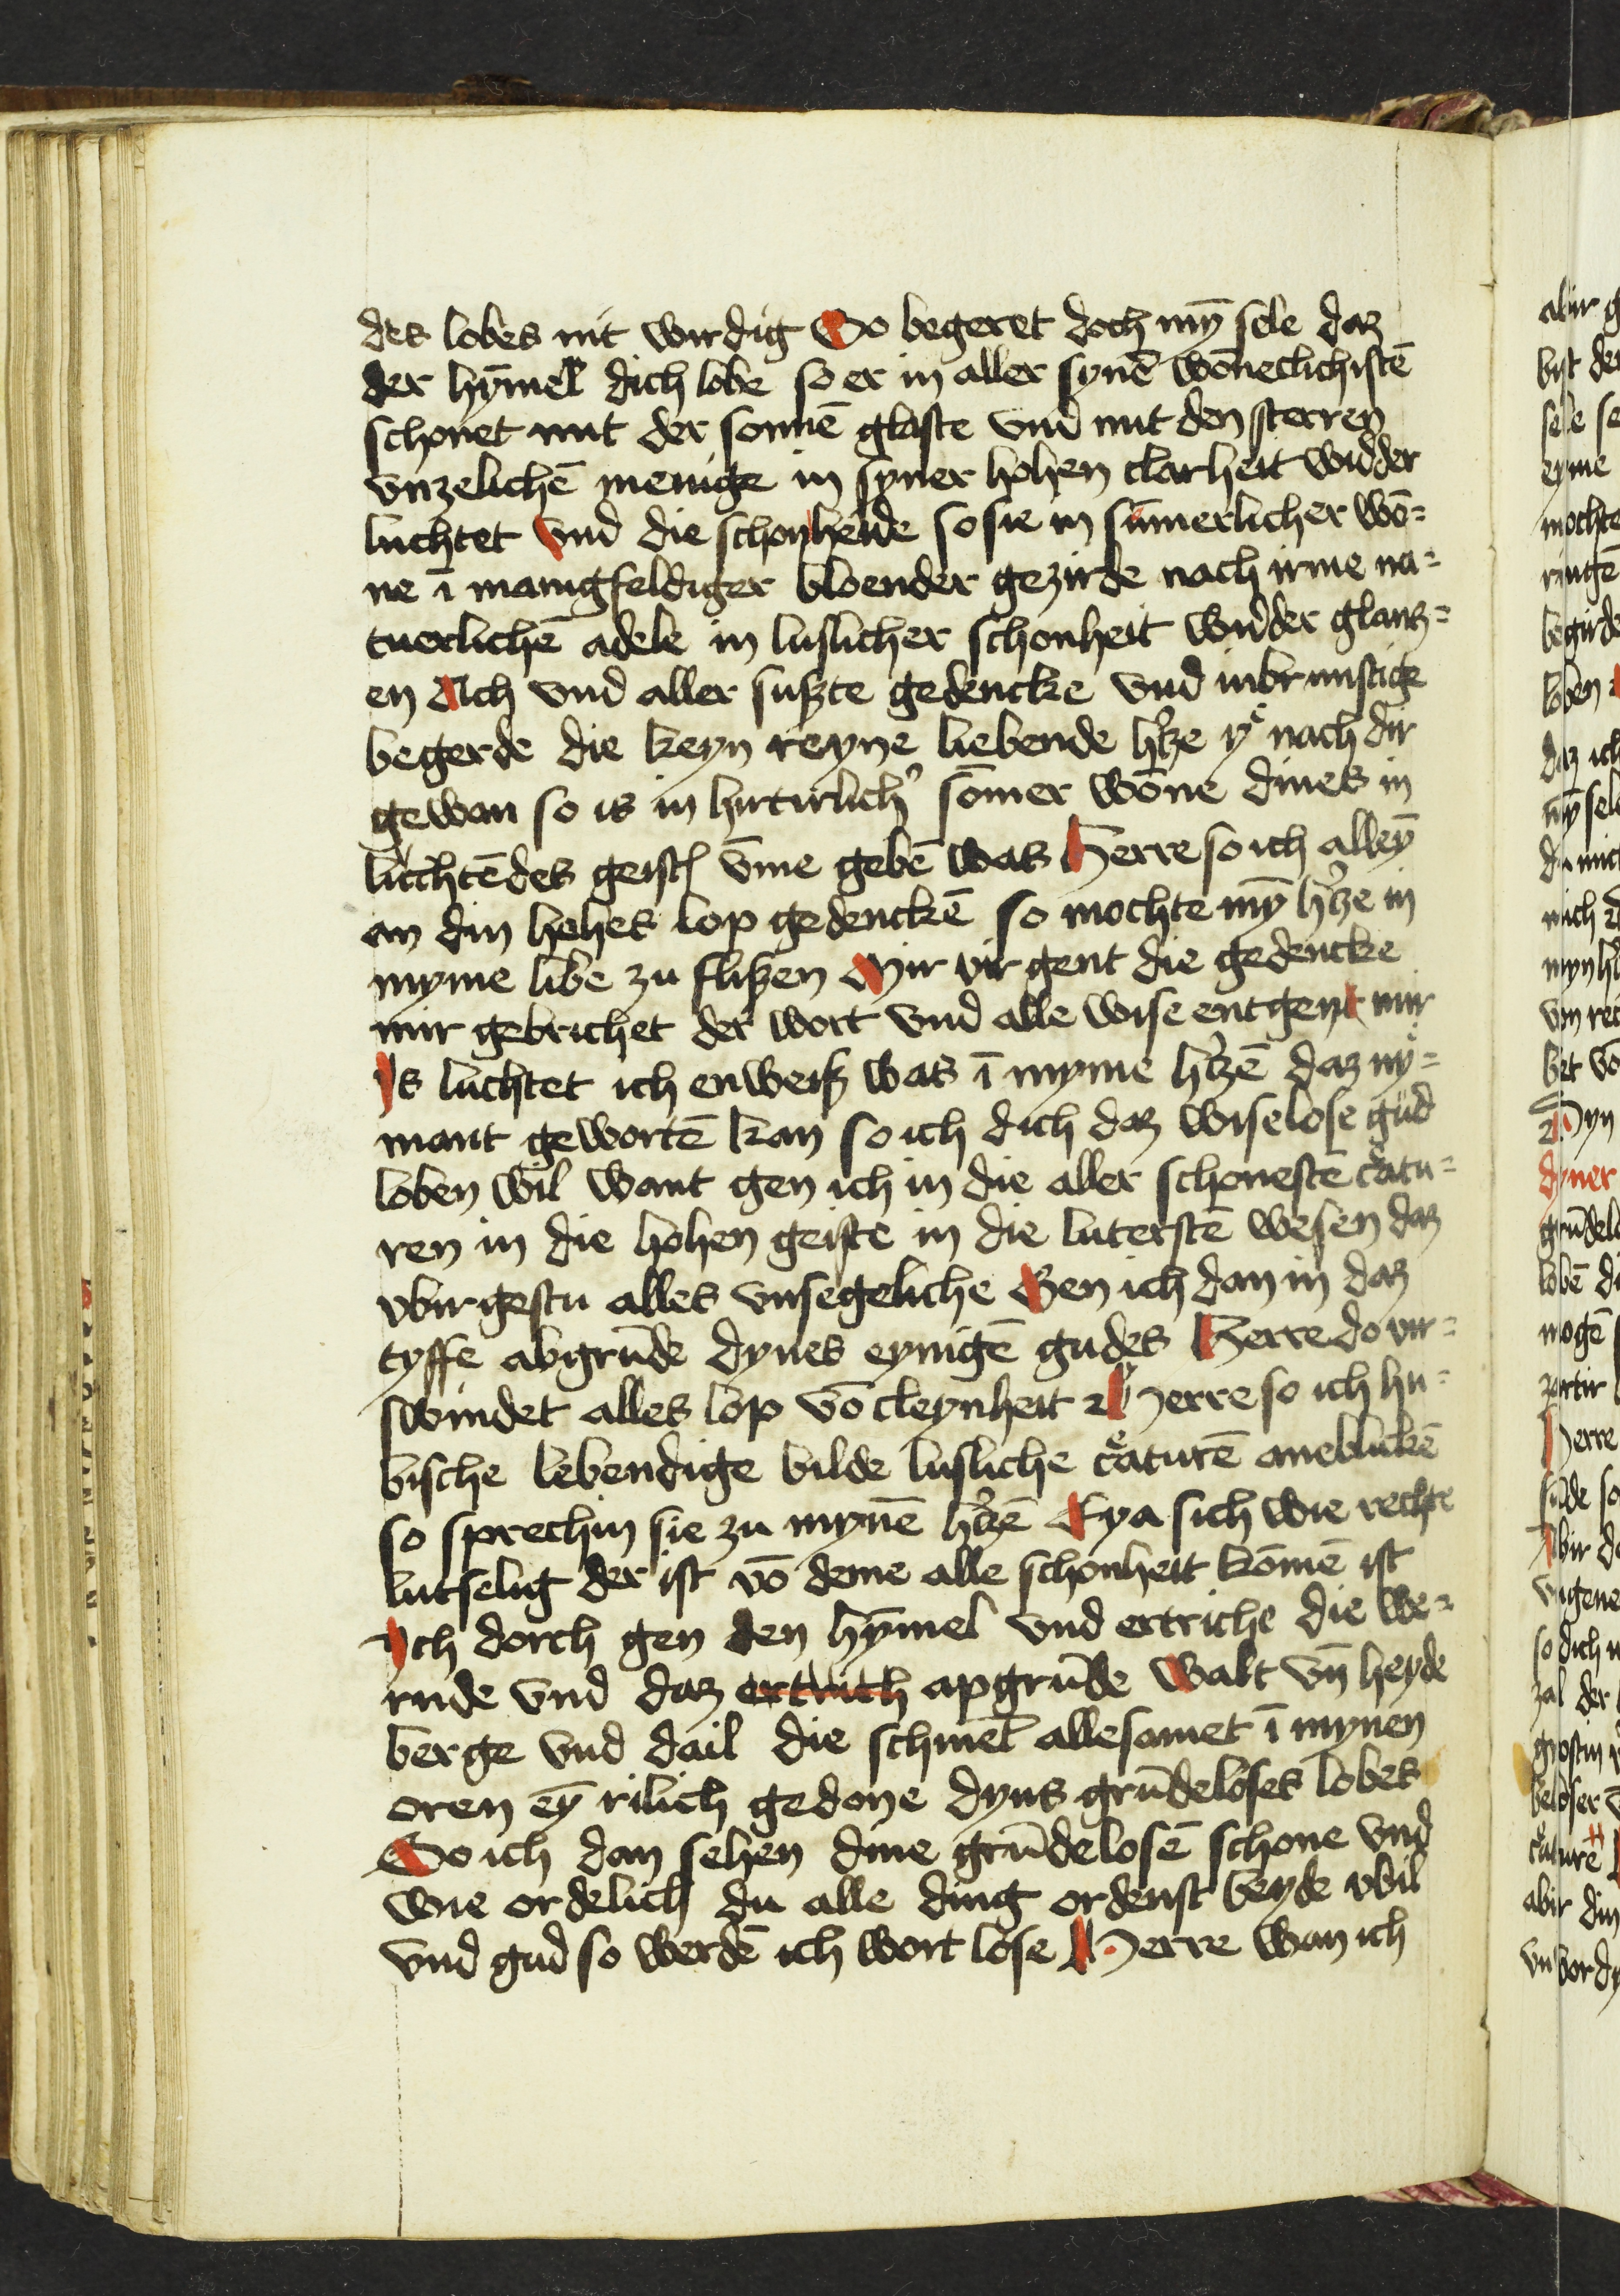 des lobes nit wirdig So begeret doch mȳ sele daz
der hȳmel dich lobe so er in aller synē wōneclichistē
schonet mit der sonnē glaste vnd mit den sterren
vnzelichē menige in syner hohen clarheit widder
luchtet Vnd die schonheide so sie in sūmerlicher wō=
ne ī manigfeldiger bloender gezirde nach irme na=
tuerlichē adele in luslicher schonheit widder glantz=
en Ach vnd aller sußte gedencke vnd inbrunstige
begerde die keyn reyne liebende h'tze yͤ nach dir
gewan so is in hirtirlich' sōmer wōne dines in
luchtēdes geist vme gebē was Herre so ich alleȳ
an din hohes lop gedenckē so mochte mȳ h'tze in
myme libe zu flißen Mir vir gent die gedencke
mir gebrichet der wort vnd alle wise entgent mir
Is luchtet ich enweiß was ī myme h'tzē daz nyͤ=
mant gewortē kan so ich dich daz wiselose gud
loben wil want gen ich in die aller schonestē cͤatu=
ren in die hohen geiste in die luterstē wesen daz
vbirgestu alles vnsegeliche Gen ich dan in daz
tyffe abgrūde dynes eynigē gudes Herre do vir=
swindet alles lop vō cleynheit Herre so ich hu=
bische lebendige bilde lusliche cͤaturē aneblickē
so sprechin sie zu mynē h'tzē Eya sich wie rechte
lutselig der ist vō deme alle schonheit kōmē ist
Ich dorch gen den hȳmel vnd ertriche die we=
rnde vnd daz ertrich apgrūde walt vn̄ heyde
berge vnd dail die schmēt allesamet ī mynen
oren eȳ rilich gedone dyns grūdeloses lobes
So ich dan sehen dine grūdelosē schone vnd
wie ordelich du alle ding ordenst beyde vbil
vnd gud so werdē ich wort lose Herre wan ich